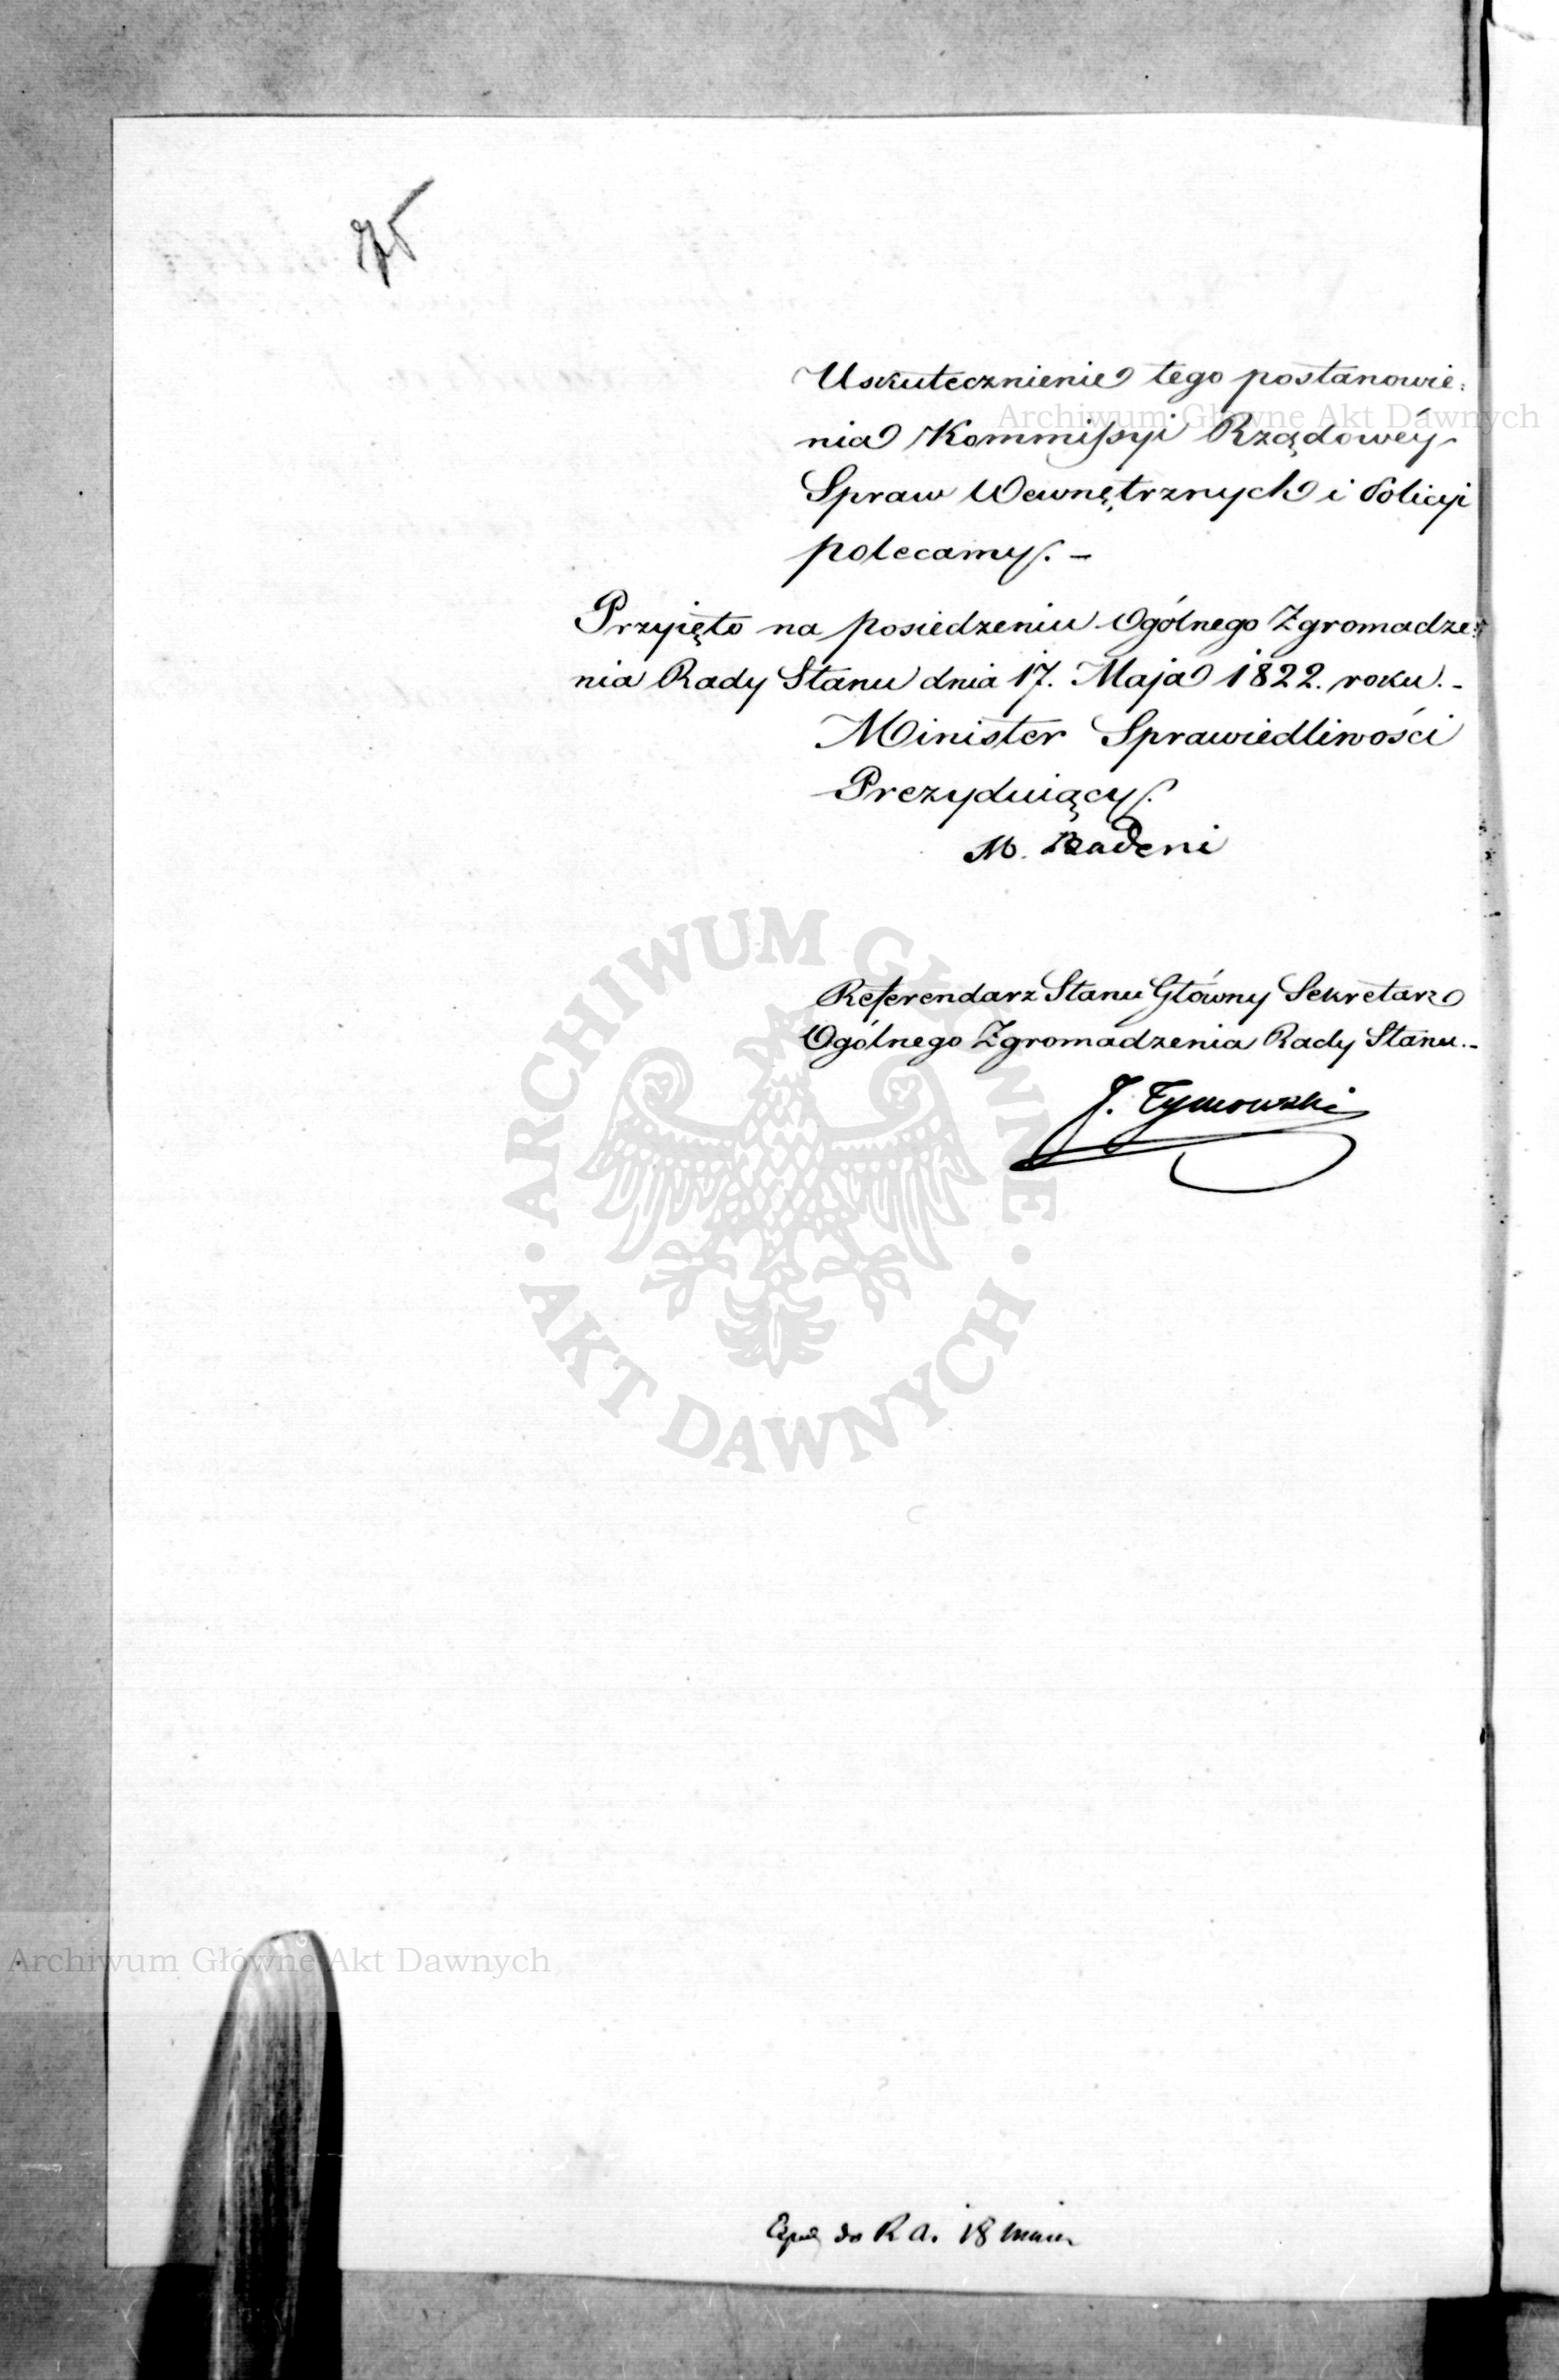 75
Uskutecznienie tego postanowie:
nia Kommissyi Rządowéy
Spraw Wewnętrznych i Policyi
polecamy. -
Przyięto na posiedzeniu Ogólnego Zgromadze:
nia Rady Stanu dnia 17. Maja 1822. roku. -
Minister Sprawiedliwości
Prezyduiący.
M. Badeni
Referendarz Stanu Główny Sekretarz
Ogólnego Zgromadzenia Rady Stanu. -
J. Tymowski
do R A. 18
Archiwum Główne Akt Dawnych
ARCHIWUM GŁÓWNE · AKT DAWNYCH ·
Archiwum Główne Akt Dawnych